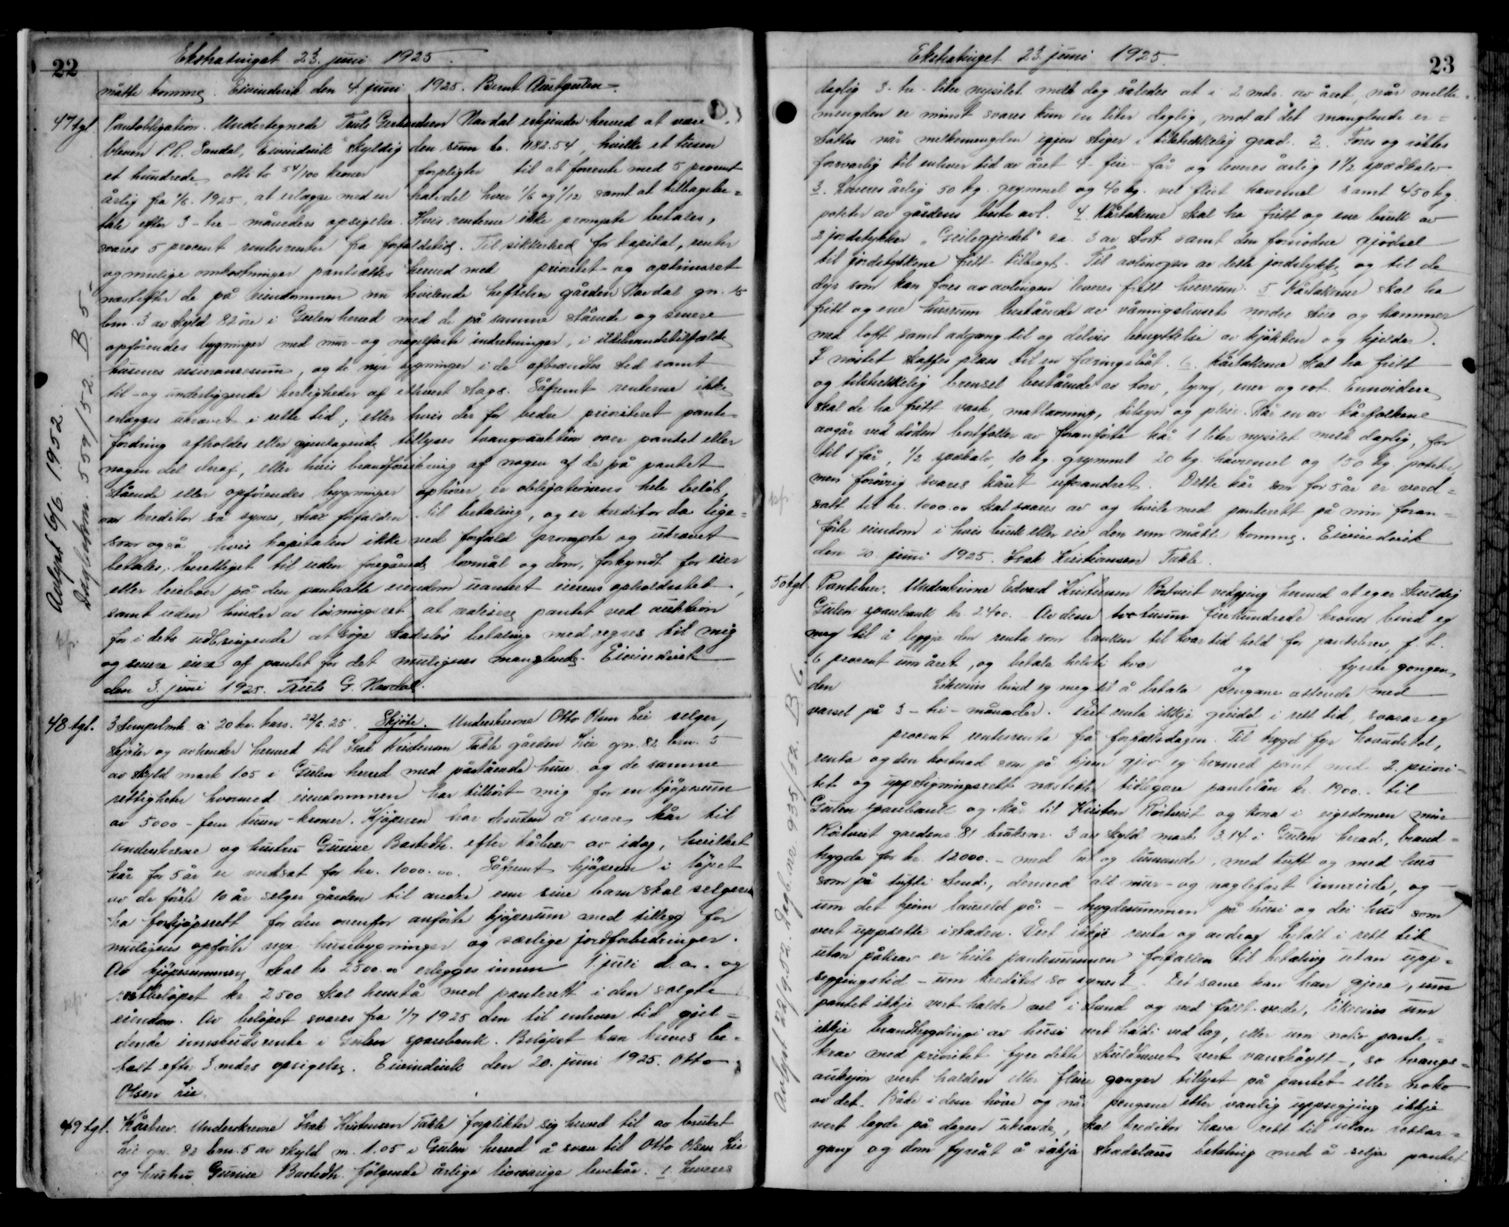 22
Ekstratinget 23. juni 1925.
måtte komme. Eivindvik den 4 juni 1925. Bernt Austgulen.
47 tgl. Pantobligation. Undertegnede Truls Gerhardsen Nardal erkjender herved at være
bleven P.R. Sandal, Eivindvik skyldig den sum kr. 1182.54, hvilke et tusen
et hundrede otti to 54/100 kroner forpligter til at forrente med 5 procent
årlig fra 1/6. 1925, at erlægge med en halvdel hver 1/6 og 1/12 samt at tilbagebe-
tale efter 3-tre-måneders opsigelse. Hvis renterne ikke prompte betales,
svares 5 procent rentesrenter fra forfaldstid. Til sikkerhed for kapital, renter
og mulige omkostninger pantsættes herved med prioritet og optrinsret
næstefter de på eiendommen nu hvilende heftelser gården Nardal gn. 15
brn. 3 av skyld 82 øre i Gulen herred med de på samme stående og senere
opførendes bygninger med mur- og nagelfaste indretninger, i ildebrandstilfælde
husenes assurancesum, og de nye bygninger i de afbrændtes sted samt
til- og underliggende herligheder af ethvert slags. Såfremt renterne ikke
erlægges ukrævet i rette tid, eller hvis der for bedre prioriteret pante-
fordring afholdes eller gjentagende tillyses tvangsauktion over pantet eller
nogen del deraf, eller hvis brandforsikring af nogen af de på pantet
stående eller opførendes bygninger ophører, er obligationens hele beløb,
om kreditor så synes, straks forfalden til betaling, og er kreditor da lige-
som også, hvis kapitalen ikke ved forfald prompte og ukrævet
betales, berettiget til uden foregående lovmål og dom, forkyndt for eier
eller leieboer på den pantsatte eiendom uanseet eierens opholdssted,
samt uden hinder av løsningsret at realisere pantet ved auktion
for i dets udbringende at søge skadesløs betaling med regres til mig
og senere eiere af pantet for det muligens manglende. Eivindvik
den 3. juni 1925. Truls G. Nardal.
Avlyst 6/6 1952.
Dagboknr. 559/52. B 5
48 tgl. 3 stempelmrk. à 20 kr. kass. 22/6 25. Skjøte. Underskrevne Otto Olsen Lie selger,
skjøter og avhender herved til Isak Kristiansen Takle gården Lie gn. 82 brn. 5
av skyld mark 1.05 i Gulen herred med påstående huse og de samme
rettigheter hvormed eiendommen har tilhørt mig for en kjøpesum
av 5000 - fem tusen - kroner. Kjøperen har desuten å svare kår til
underskrevne og hustru Gurine Bastedtr. efter kårbrev av idag, hvilket
kår for 5 år er verdsat for kr. 1000.00. Såfremt kjøperen i løpet
av de første 10 år selger gården til andre enn sine barn skal selgeren
ha forkjøpsrett for den ovenfor anførte kjøpesum med tillegg for
muligens opførte nye husebygninger og særlige jordforbedringer.
Av kjøpesummen skal kr 2500.00 erlegges innen 1 juli d.a. og
restbeløpet kr 2500 skal henstå med panterett i den solgte
eiendom. Av beløpet svares fra 1/7 1925 den til enhver tid gjel-
dende innskudsrente i Gulen sparebank. Beløpet kan kreves be-
talt efter 3 mdrs opsigelse. Eivindvik den 20. juni 1925. Otto
Olsen Lie.
49 tgl. Kårbrev. Underskrevne Isak Kristensen Takle forplikter sig herved til av bruket
Lie gn. 82 brn. 5 av skyld m. 1.05 i Gulen herred å svare til Otto Olsen Lie
og hustru Gurine Bastedtr. følgende årlige livsvarige levekår. 1 Leveres
23
Ekstratinget 23 juni 1925.
daglig 3 tre liter nysilet melk dog således at i 2 mdr. av året, når melke-
mengden er minst svares kun en liter daglig, mot at det manglende er-
stattes når melkemengden igjen stiger i tilstrekkelig grad. 2. Fores og røktes
forsvarlig til enhver tid av året 4 fire får og leveres årlig 1½ spædkalv
3. Leveres årlig 50 kg. grynmel og 40 kg. vel flått havremel samt 450 kg.
poteter av gårdens beste avl. 4 Kårtakerne skal ha fritt og ene bruk av
2 jordstykker "Geilegjerdet" ca. 3 ar stort samt den fornødne gjødsel
til jordstykkene fritt tilbragt. Til avlingen av dette jordstykke og til de
dyr som kan fores av avlingen leveres fritt husrum. 5 Kårtakerne skal ha
fritt og ene husrum bestående av våningshusets nordre stue og kammer
med loft samt adgang til og delvis benyttelse av kjøkken og kjelder.
I nøstet skaffes plass til en færingsbåt. 6. Kårtakerne skal ha fritt
og tilstrekkelig brensel bestående av torv, lyng, ener og ved. Ennvidere
skal de ha fritt vask, matlavning, tilsyn og pleie. Når en av kårfolkene
avgår ved døden bortfaller av foranførte kår 1 liter nysilet melk daglig, for
til 1 får, ½ spækalv, 10 kg. grynmel 20 kg havremel og 150 kg poteter,
men forøvrig svares kåret uforandret. Dette kår som for 5 år er verd-
satt til kr. 1000.00 skal svares av og hvile med panterett på min foran-
førte eiendom i hvis bruk eller eie den enn måtte komme. Eivindvik
den 20 juni 1925. Isak Kristiansen Takle.
50 tgl. Pantebrev. Underskrevne Edvard Kristensen Kortveit vedgjeng hermed at eg er skuldig
Gulen sparebank kr. 2400. Av desse to tusum firehundrede kronor bind eg
meg til å leggja den renta som banken til kvar tid held for pantebrev, f. t.
6 procent um året, og betala helvti kvar og fyrste gongen
den Likeeins bind eg meg til å betala pengane attende med
varsel på 3 - tri - månader. Vert renta ikkje greidd i rett tid, svarar eg
procent renterenta frå forfallsdagen. Til trygd fyr hovudstol,
renta og den kostnad som på kjem gjev eg hermed pant med 2. priori-
tet og upprykningsrett næstetter tidlegare pantelån kr. 1900.- til
Gulen sparebank og kår til Kristen Kortveit og kona i eigedomen min
Kortveit gardsnr. 81 bruksnr. 3 av skyld mark 3.14 i Gulen herad, brand-
trygda for kr. 12000.- med lut og lunnende, med tuft og med hus
som på tufti stend, dermed alt mur- og naglefast innreide, og
um det kjem lausøld på - trygdesummen på husi og dei hus som
vert uppsette istaden. Vert ikkje renta og avdrag betalt i rett tid
utan påkrav er heile pantesummen forfallen til betaling utan upp-
seggingstid - um kreditor so synest. Det same kan han gjera, um
pantet ikkje vert halde vel i stand og ved fullt verde, likeeins um
ikkje brandtrygdingi av husi vert haldi ved lag, eller um noko pante-
krav med prioritet fyre dette skuldbrevet vert vanskøytt -, so tvangs-
auksjon vert halden eller fleire gonger tillyst på pantet eller noko
av det. Både i desse høve og når pengane etter vanleg uppseggjing ikkje
vert lagde på dagen ukravde, skal kreditor hava rett til utan rettar-
gang og dom fyreåt å søkja skadelaus betaling med å selja pantet
Avlyst 22/9 52. Dagb.nr 935/52. B 6